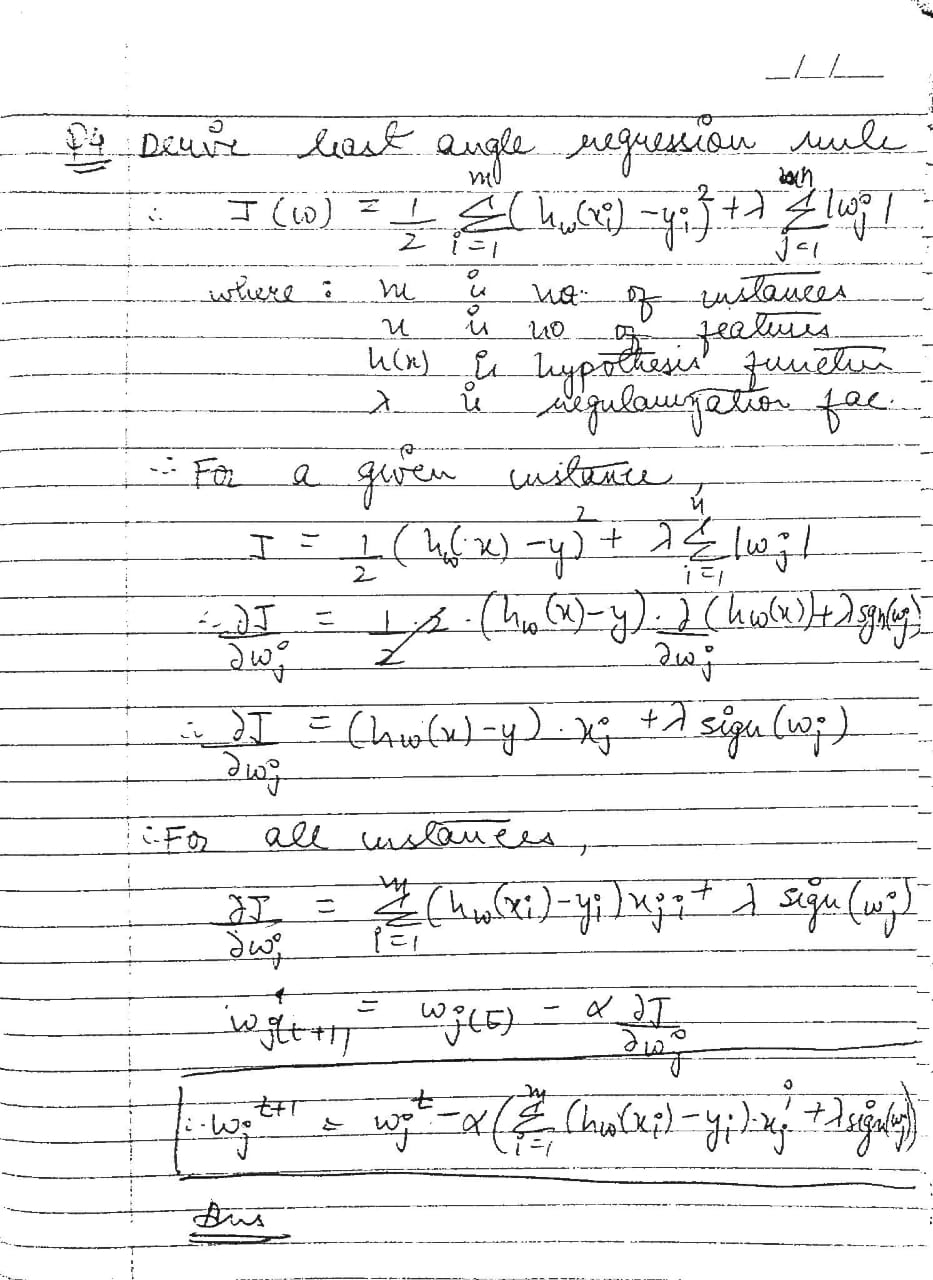 _/_/__
Q4 Derive least angle regression rule
∴ J(w) = 1/2 Σ_{i=1}^{m} (h_w(x_i) - y_i)^2 + λ Σ_{j=1}^{n} |w_j|
where : m is no. of instances
n is no of features
h(x) is hypothesis function
λ is regularization fac.
∴ For a given instance,
J = 1/2 (h_w(x) - y)^2 + λ Σ_{i=1}^{n} |w_j|
∴ ∂J/∂w_j = 1/2 · 2 · (h_w(x) - y) · ∂/∂w_j (h_w(x)) + λ sgn(w_j)
∴ ∂J/∂w_j = (h_w(x) - y) · x_j + λ sign(w_j)
∴ For all instances,
∂J/∂w_j = Σ_{i=1}^{m} (h_w(x_i) - y_i) x_{ji} + λ sign(w_j)
w_{j(t+1)} = w_{j(t)} - α ∂J/∂w_j
∴ w_j^{t+1} = w_j^t - α (Σ_{i=1}^{m} (h_w(x_i) - y_i) · x_j^i + λ sign(w_j))
Ans